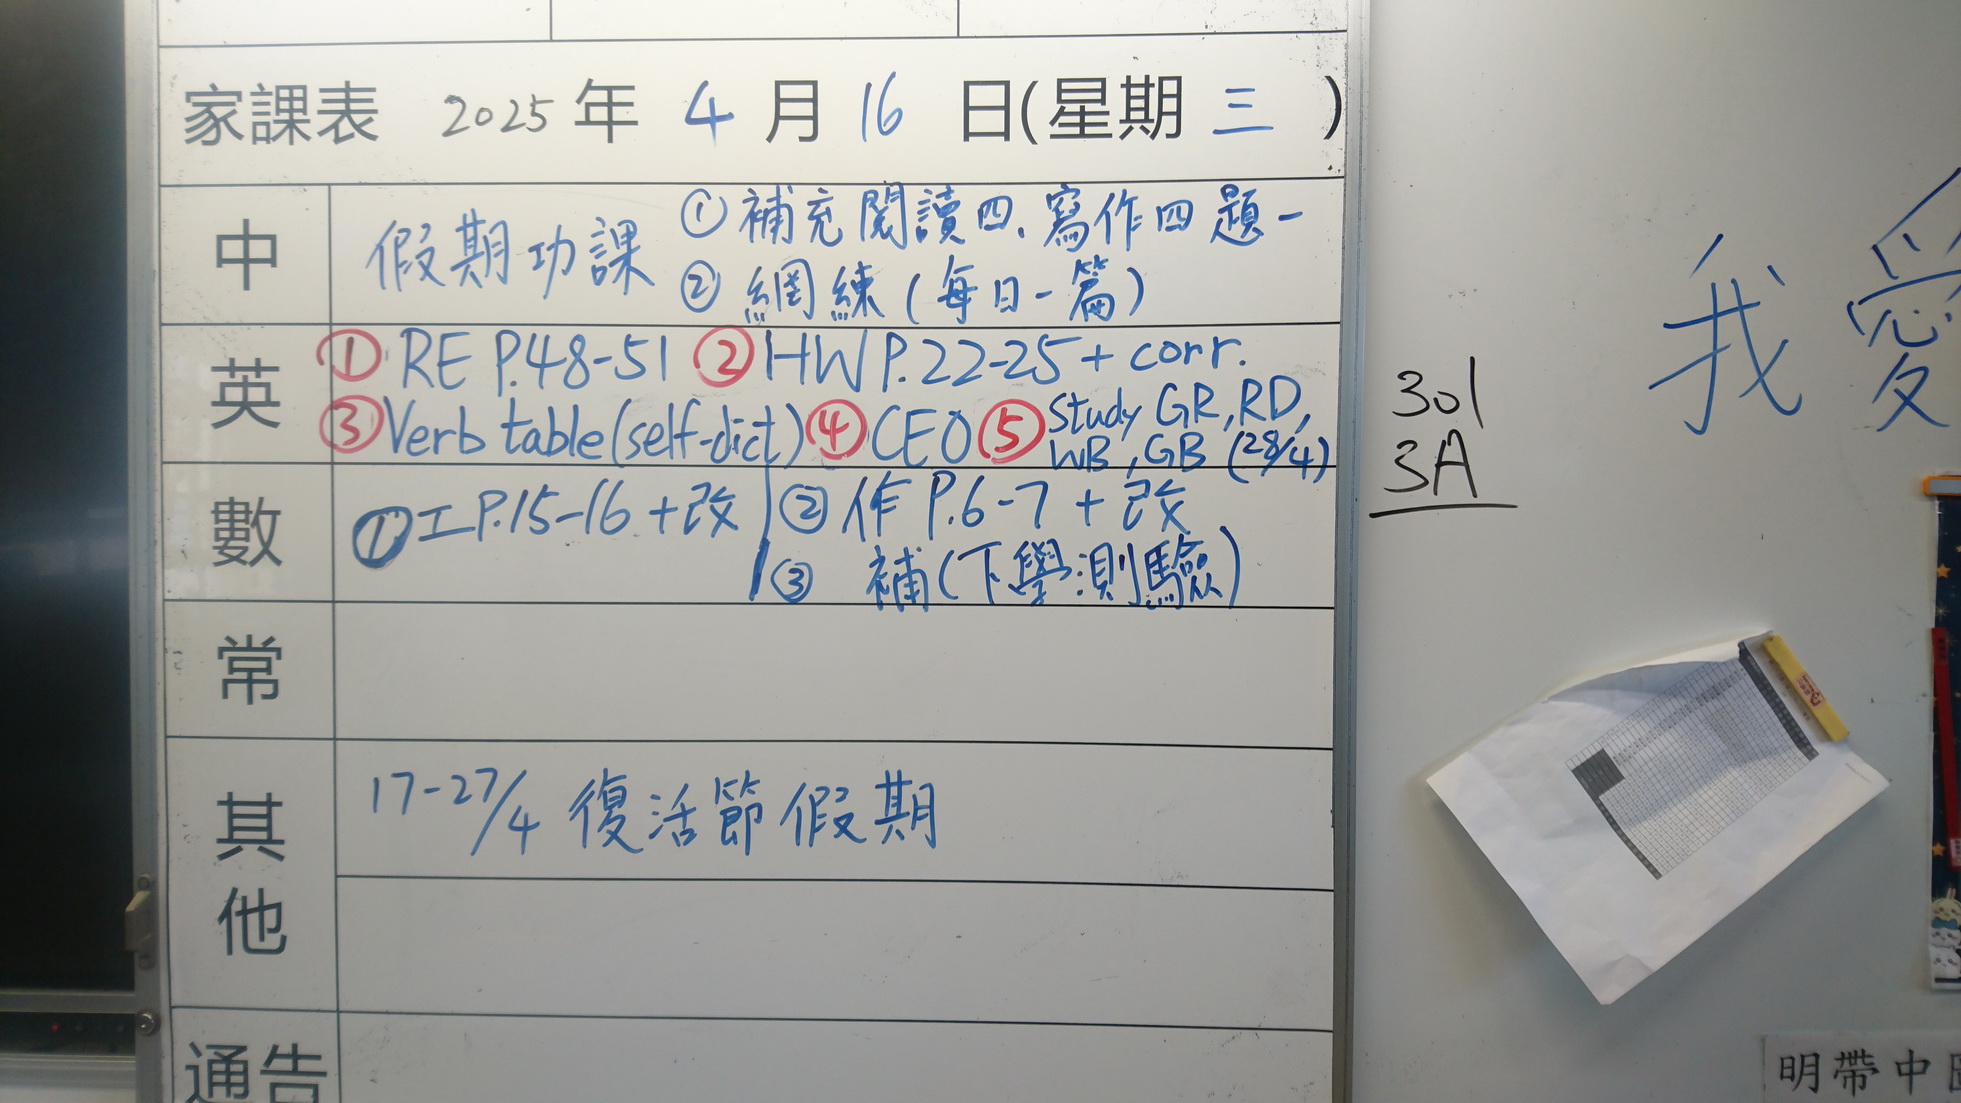 家課表 2025 年 4 月 16 日(星期 三 )
中 假期功課 ① 補充閱讀四、寫作四題一
② 網練(每日一篇)
英 ① RE P.48-51 ② HW P.22-25 + corr.
③ Verb table (self-dict) ④ CEO ⑤ Study GR, RD,
WB, GB (28/4)
數 ① 工 P.15-16 + 改 ② 作 P.6-7 + 改
③ 補(下學測驗)
常
其他 17-27/4 復活節假期
通告
301
3A
我愛
明帶中